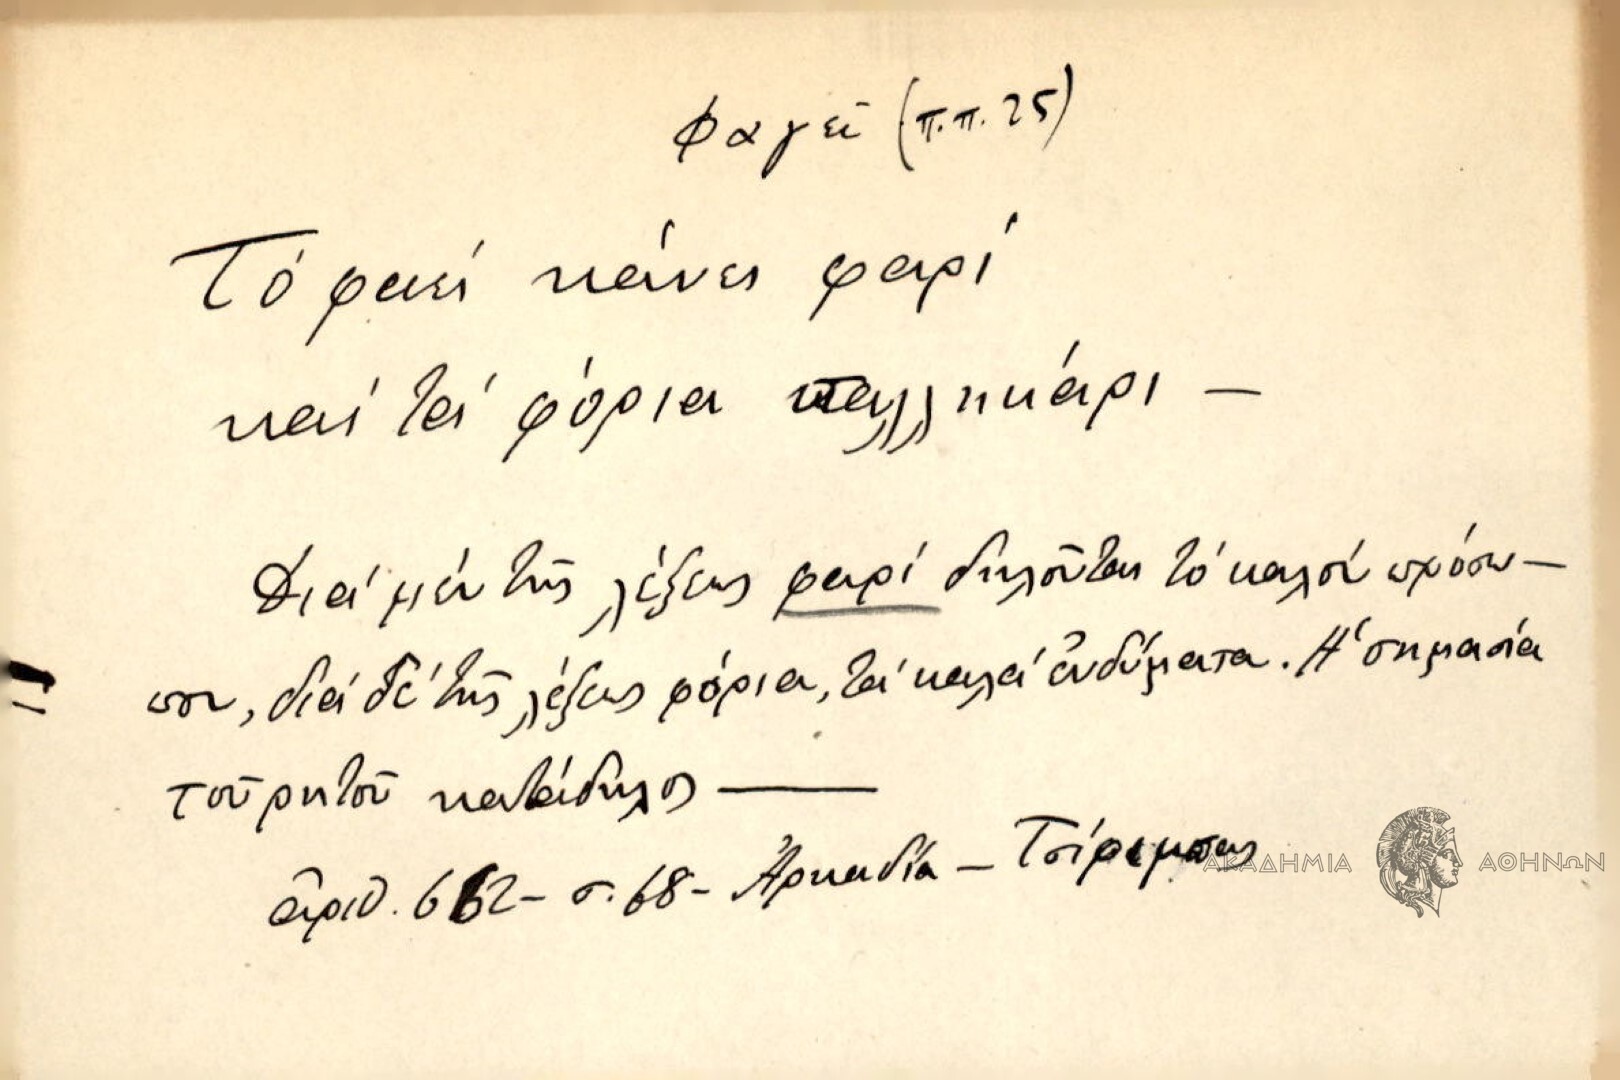 Φαγεῖ (π.π. 25)
Τό φαεί κάνει φαρί
καί τά φόρια παλληκάρι –
Διά μέν τῆς λέξεως φαρί δηλοῦται τό καλόν πρόσω–
που, διά δέ τῆς λέξεως φόρια, τά καλά ἐνδύματα. Ἡ σημασία
τοῦ ρητοῦ κατάδηλος —
ἀριθ. 662 – σ. 68 – Ἀρκαδία –
ΑΚΑΔΗΜΙΑ ΑΘΗΝΩΝ